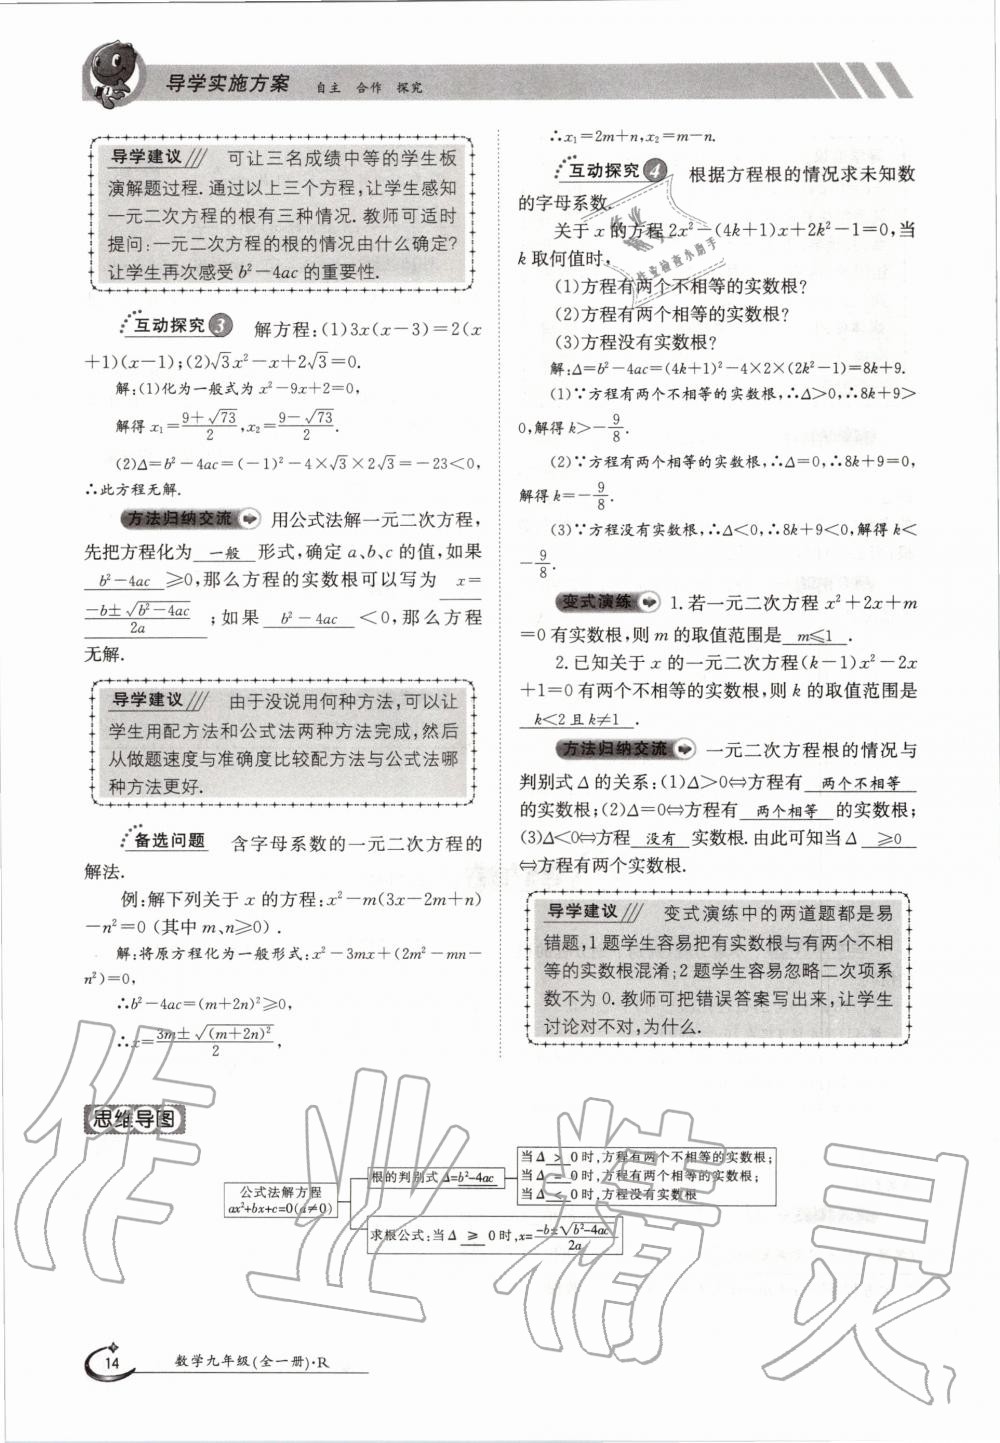 导学实施方案 自主 合作 探究
导学建议/// 可让三名成绩中等的学生板
演解题过程.通过以上三个方程,让学生感知
一元二次方程的根有三种情况.教师可适时
提问:一元二次方程的根的情况由什么确定?
让学生再次感受 b²－4ac 的重要性.
互动探究3 解方程:(1)3x(x－3)=2(x
+1)(x－1);(2)√3x²－x+2√3=0.
解:(1)化为一般式为 x²－9x+2=0,
解得 x₁=(9+√73)/2,x₂=(9－√73)/2.
(2)Δ=b²－4ac=(－1)²－4×√3×2√3=－23<0,
∴此方程无解.
方法归纳交流 用公式法解一元二次方程,
先把方程化为 一般 形式,确定 a、b、c 的值,如果
b²－4ac ≥0,那么方程的实数根可以写为 x=
(－b±√(b²－4ac))/2a ;如果 b²－4ac <0,那么方程
无解.
导学建议/// 由于没说用何种方法,可以让
学生用配方法和公式法两种方法完成,然后
从做题速度与准确度比较配方法与公式法哪
种方法更好.
备选问题 含字母系数的一元二次方程的
解法.
例:解下列关于 x 的方程:x²－m(3x－2m+n)
－n²=0 (其中 m、n≥0) .
解:将原方程化为一般形式:x²－3mx+(2m²－mn－
n²)=0,
∴b²－4ac=(m+2n)²≥0,
∴x=(3m±√(m+2n)²)/2,
∴x₁=2m+n,x₂=m－n.
互动探究4 根据方程根的情况求未知数
的字母系数.
关于 x 的方程 2x²－(4k+1)x+2k²－1=0,当
k 取何值时,
(1)方程有两个不相等的实数根?
(2)方程有两个相等的实数根?
(3)方程没有实数根?
解:Δ=b²－4ac=(4k+1)²－4×2×(2k²－1)=8k+9.
(1)∵方程有两个不相等的实数根,∴Δ>0,∴8k+9>
0,解得 k>－9/8.
(2)∵方程有两个相等的实数根,∴Δ=0,∴8k+9=0,
解得 k=－9/8.
(3)∵方程没有实数根,∴Δ<0,∴8k+9<0,解得 k<
－9/8.
变式演练 1.若一元二次方程 x²+2x+m
=0 有实数根,则 m 的取值范围是 m≤1 .
2.已知关于 x 的一元二次方程(k－1)x²－2x
+1=0 有两个不相等的实数根,则 k 的取值范围是
k<2 且 k≠1 .
方法归纳交流 一元二次方程根的情况与
判别式 Δ 的关系:(1)Δ>0⇔方程有 两个不相等
的实数根;(2)Δ=0⇔方程有 两个相等 的实数根;
(3)Δ<0⇔方程 没有 实数根.由此可知当 Δ ≥0
⇔方程有两个实数根.
导学建议/// 变式演练中的两道题都是易
错题,1 题学生容易把有实数根与有两个不相
等的实数根混淆;2 题学生容易忽略二次项系
数不为 0.教师可把错误答案写出来,让学生
讨论对不对,为什么.
思维导图
公式法解方程
ax²+bx+c=0(a≠0)
根的判别式 Δ=b²-4ac
当 Δ > 0 时,方程有两个不相等的实数根;
当 Δ = 0 时,方程有两个相等的实数根;
当 Δ < 0 时,方程没有实数根
求根公式:当 Δ ≥ 0 时,x=(-b±√(b²-4ac))/2a
14 数学九年级(全一册)·R
作业精灵
作业检查小助手